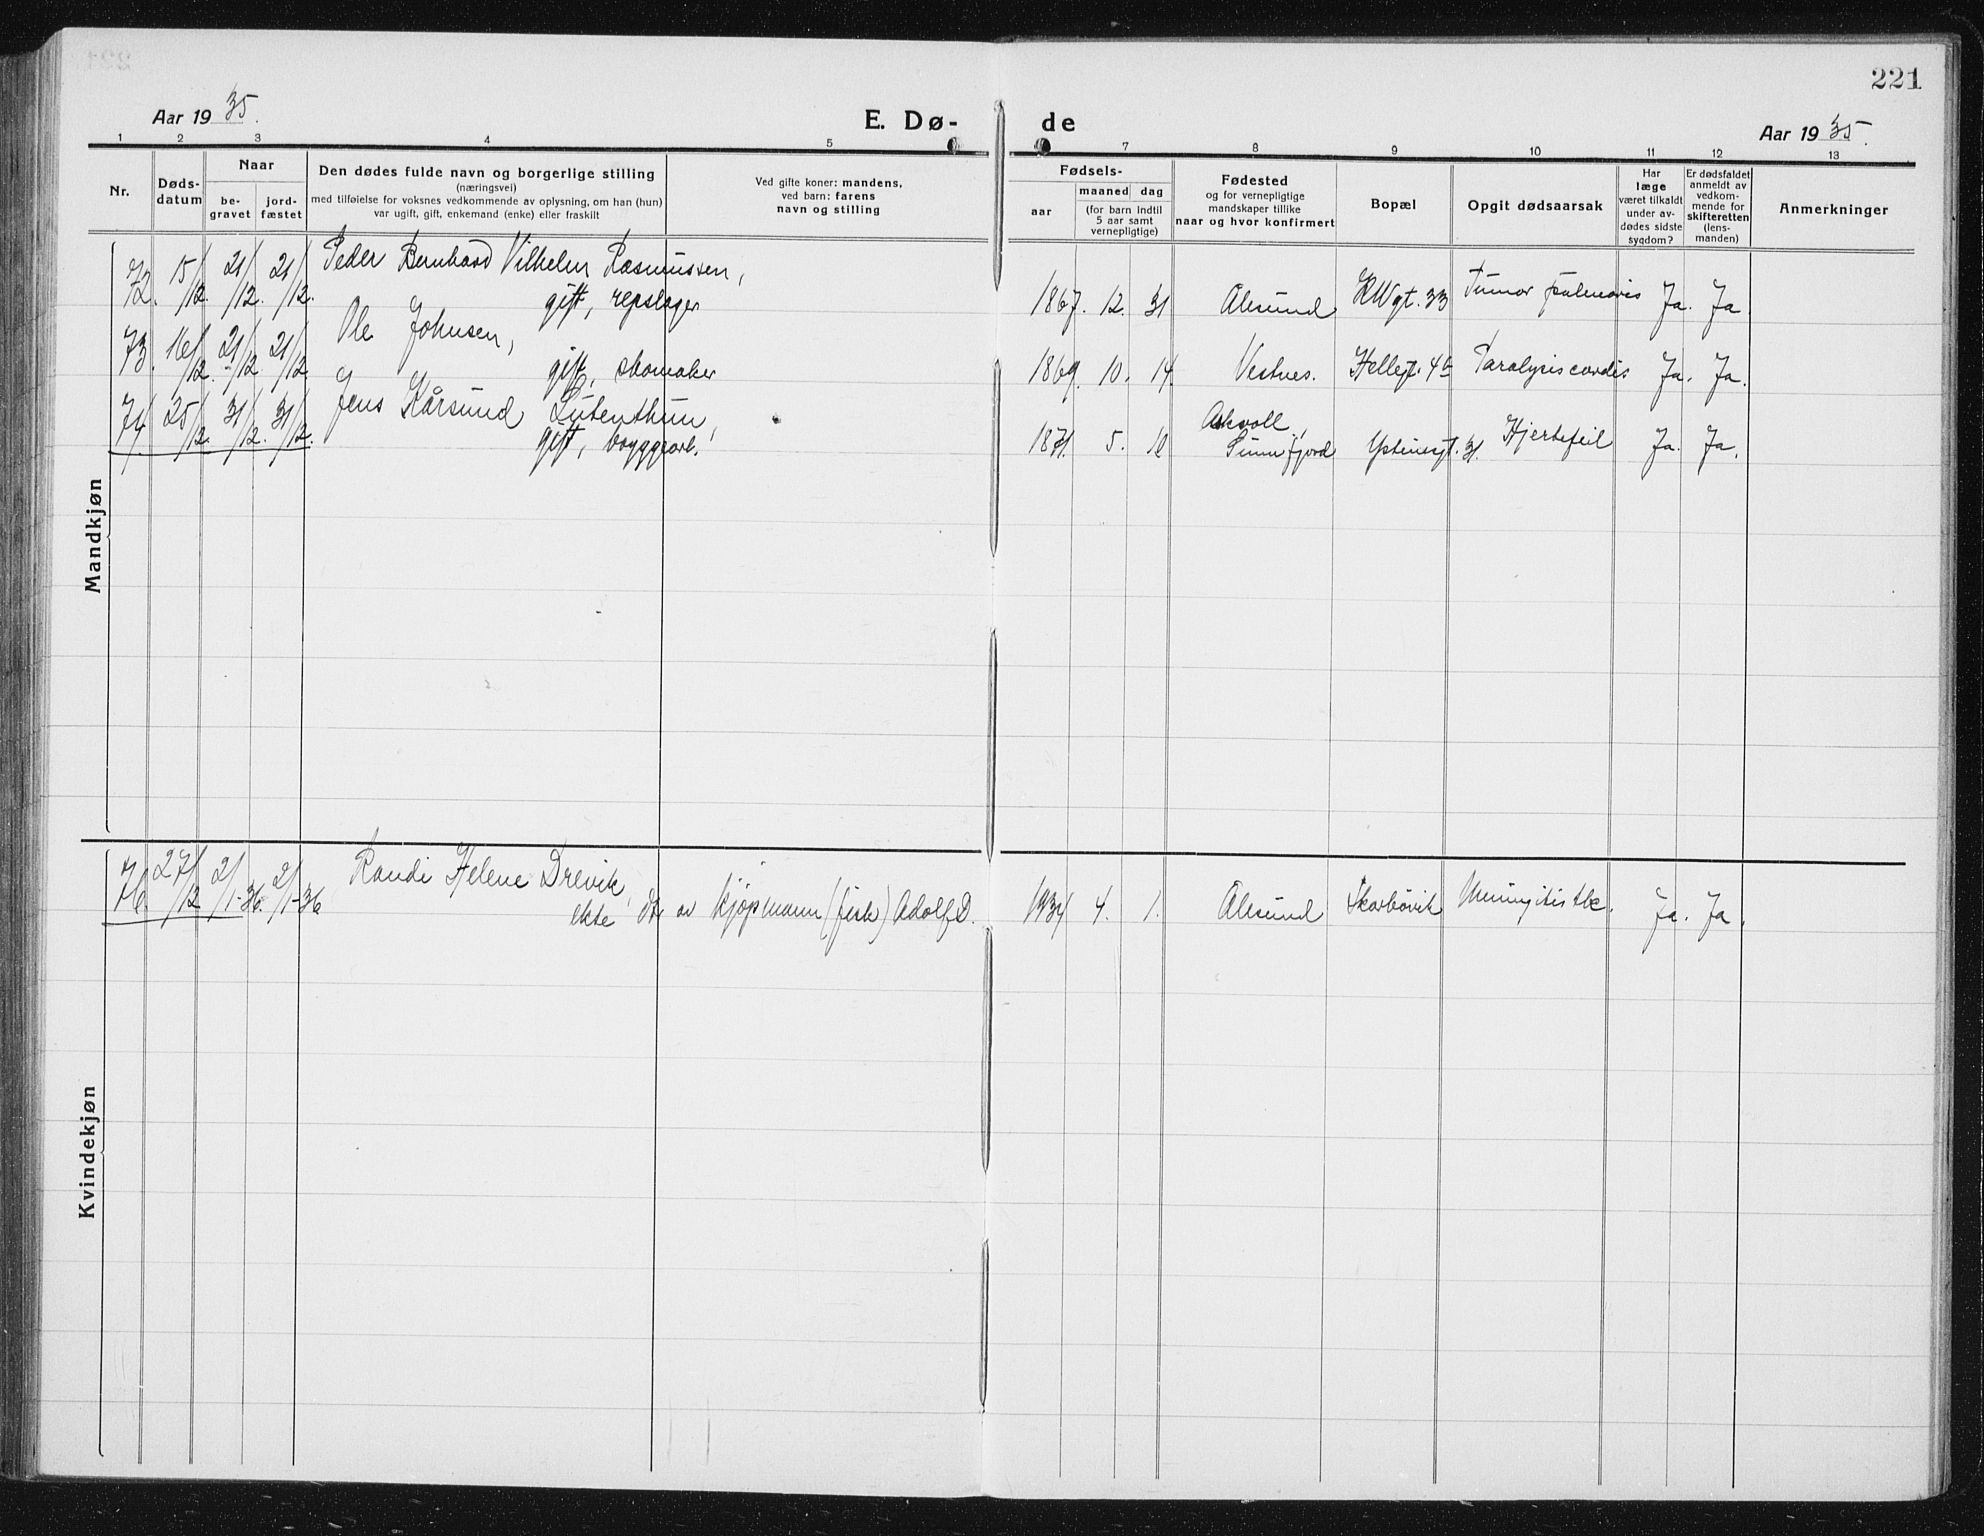 221
Aar 1935. E. Dø- de Aar 1935.
1 2 3 4 5 7 8 9 10 11 12 13
Nr.
Døds-
datum
Naar
be-
gravet
jord-
fæstet
Den dødes fulde navn og borgerlige stilling
(næringsvei)
med tilføielse for voksnes vedkommende av oplysning, om han (hun)
var ugift, gift, enkemand (enke) eller fraskilt
Ved gifte koner: mandens,
ved barn: farens
navn og stilling
Fødsels-
aar
maaned dag
(for barn indtil
5 aar samt
vernepligtige)
Fødested
og for vernepligtige
mandskaper tillike
naar og hvor konfirmert
Bopæl
Opgit dødsaarsak
Har
læge
været tilkaldt
under av-
dødes sidste
sygdom?
Er dødsfaldet
anmeldt av
vedkom-
mende for
skifteretten
(lens-
manden)
Anmerkninger
Mandkjøn
72. 15/12. 21/12. 21/12. Peder Bernhard Vilhelm Rasmussen,
gift, repslager 1867. 12. 31 Ålesund KWgt. 33 Tumor pulmonis Ja. Ja.
73. 16/12. 21/12 21/12 Ole Johnsen,
gift, skomaker 1869. 10. 14. Vestnes. Hellegt. 4b Paralysis cordis Ja. Ja.
74 25/12. 31/12. 31/12. Jens Kårsund Lutenthun,
gift, byggearb. 1871. 5. Askvoll,
Sunnfjord Ystenesgt. 31. Hjertefeil Ja. Ja.
Kvindekjøn
76 27/12 2/1-36. 2/1-36 Randi Helene Drevik,
ekte dtr av kjøpmann (fisk) Adolf D. 1934 4. 1. Ålesund Skarbøvik Meningitis tbc. Ja. Ja.